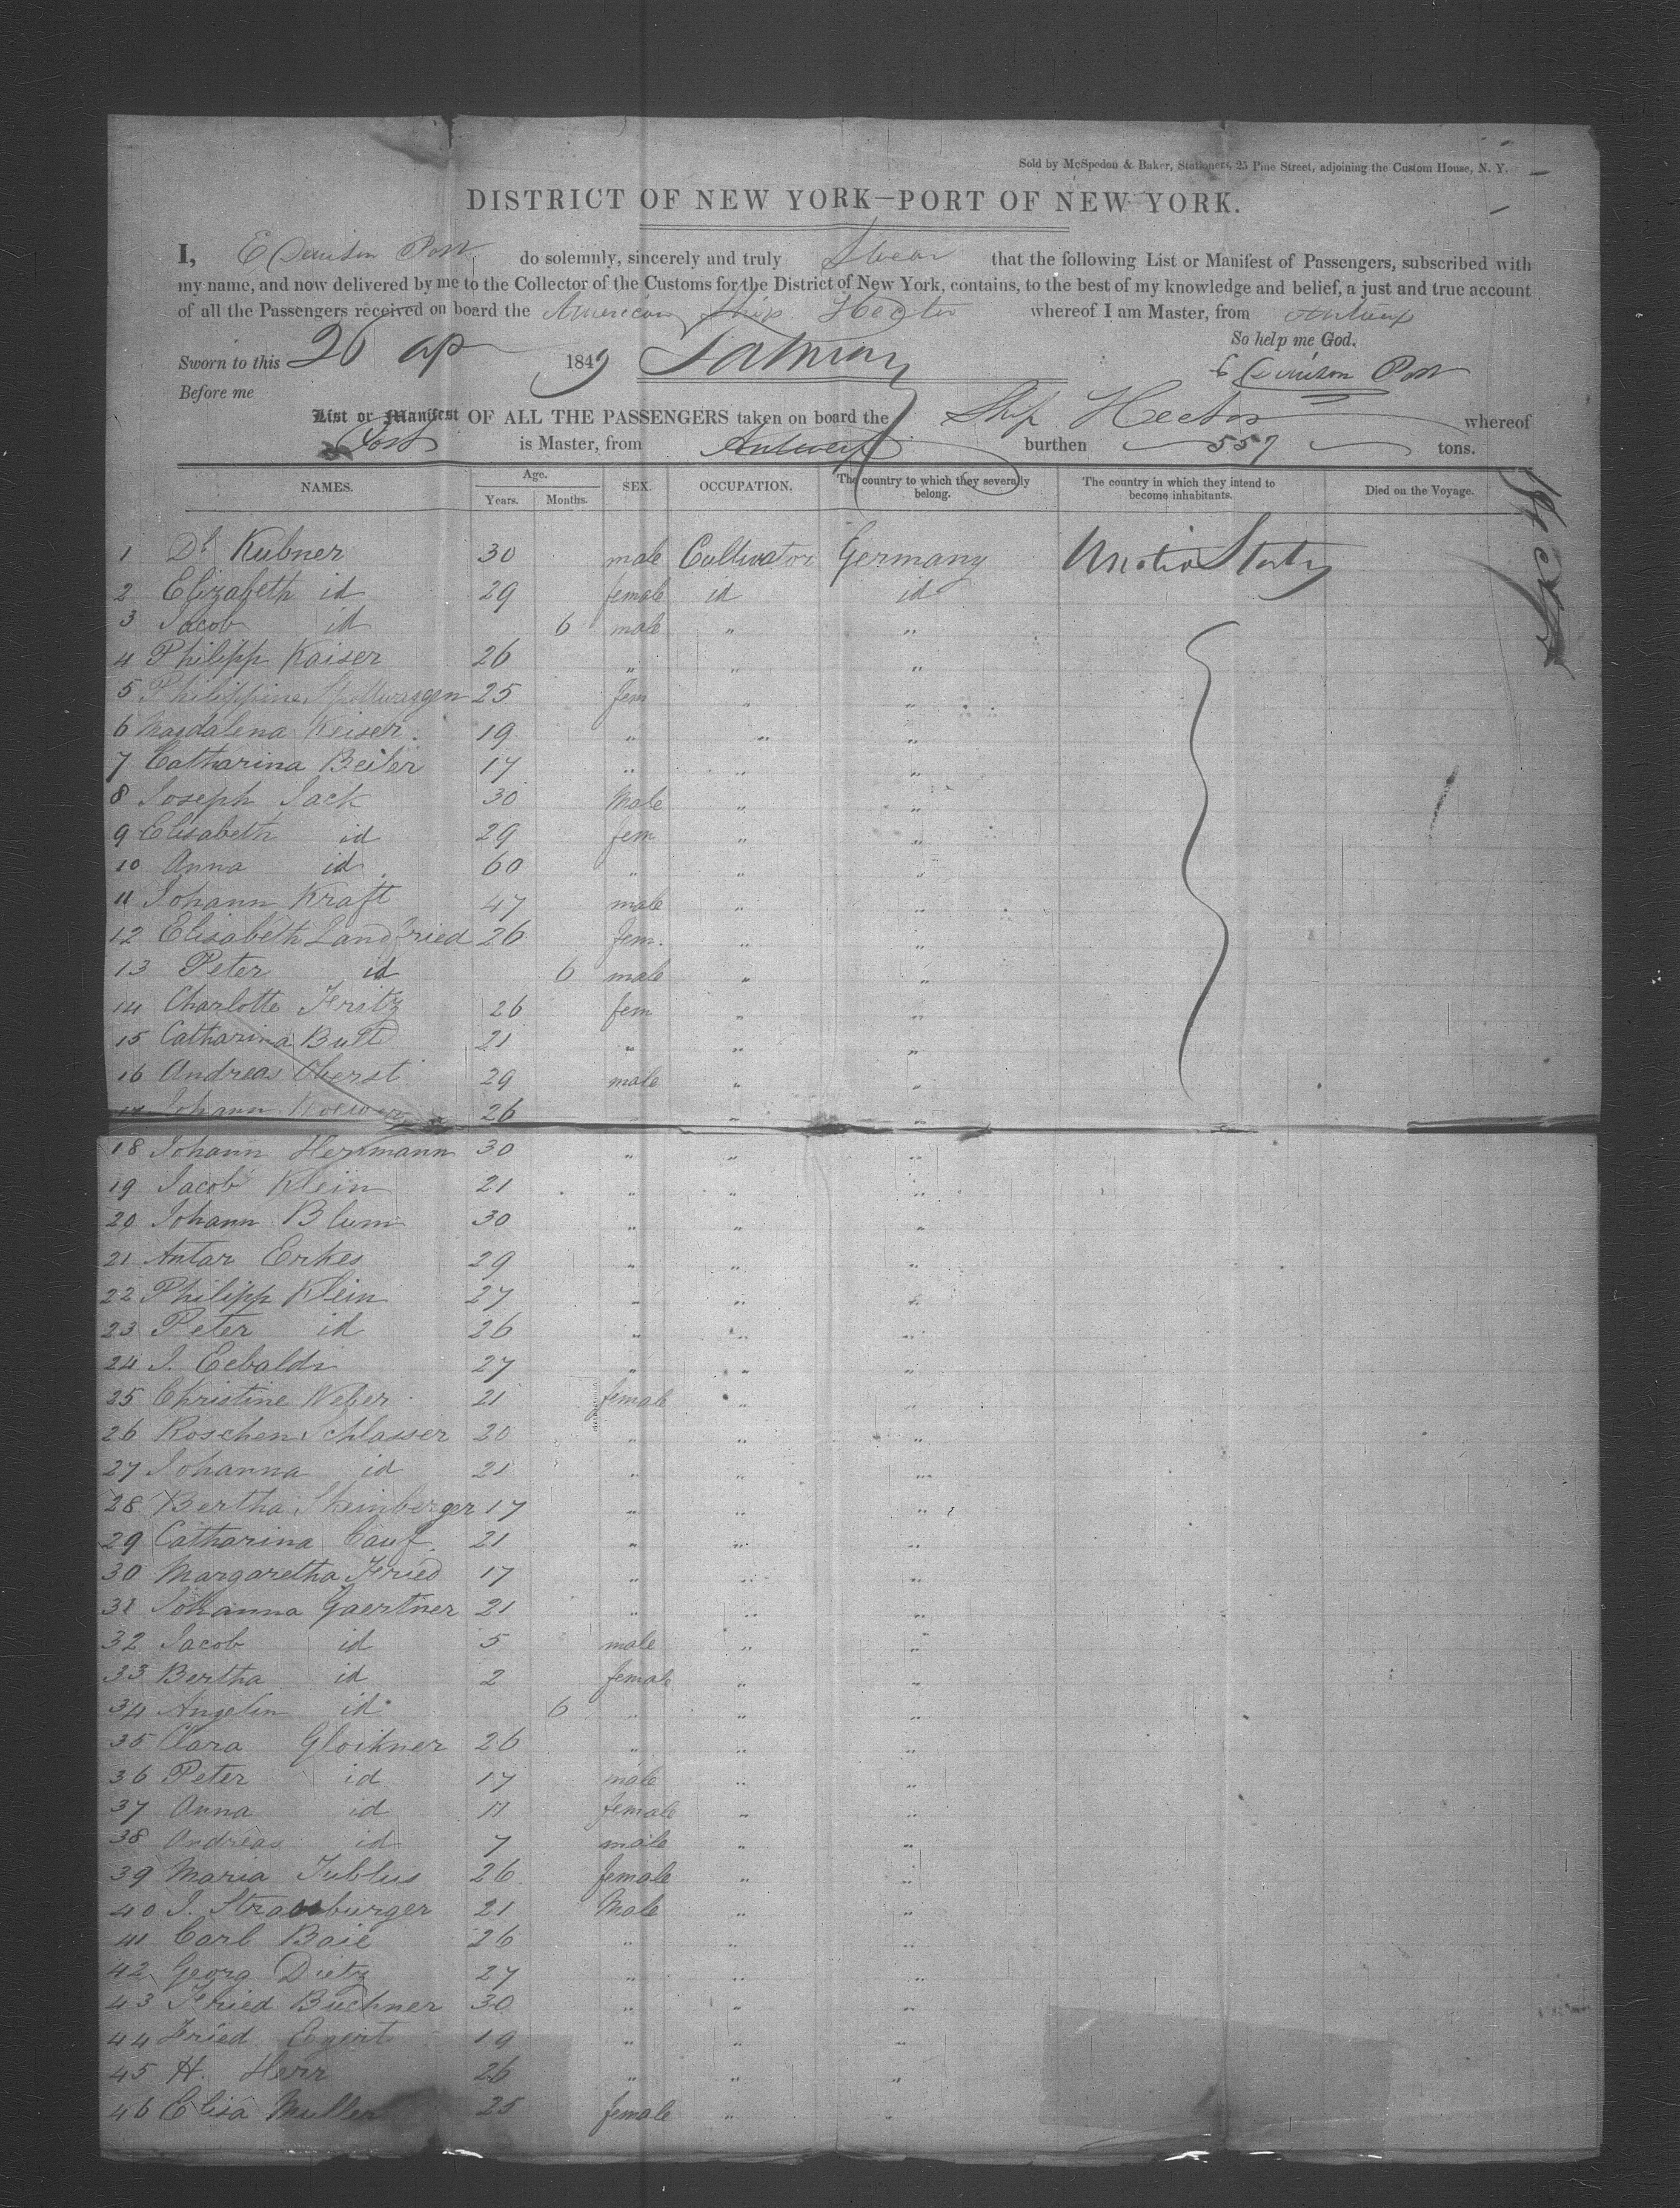 Sold by McSpedon & Baker, Stationers, 25 Pine Street, adjoining the Custom House, N. Y.
DISTRICT OF NEW YORK—PORT OF NEW YORK.
I, E Denison Post do solemnly, sincerely and truly Swear that the following List or Manifest of Passengers, subscribed with
my name, and now delivered by me to the Collector of the Customs for the District of New York, contains, to the best of my knowledge and belief, a just and true account
of all the Passengers received on board the American Ship Hector whereof I am Master, from Antwerp
So help me God.
Sworn to this 26 Ap 1849
E Denison Post
Before me
List or Manifest OF ALL THE PASSENGERS taken on board the Ship Hector whereof
Post is Master, from Antwerp burthen 557 tons.
NAMES. Age. Years. Months. SEX. OCCUPATION. The country to which they severally belong. The country in which they intend to become inhabitants. Died on the Voyage.
1 Dl Kubner 30 male Cultivator Germany United States
2 Elizabeth id 29 female id id
3 Jacob id 6 male " "
4 Philipp Kaiser 26 " " "
5 Philippine 25 fem " "
6 Magdalena Keiser. 19 " " "
7 Catharina Beiler 17 " " "
8 Joseph Jack 30 Male " "
9 Elisabeth id 29 fem " "
10 Anna id 60 " " "
11 Johann Kraft 47 male " "
12 Elisabeth Landfried 26 fem. " "
13 Peter id 6 male " "
14 Charlotte Fritz 26 fem " "
15 Catharina Butt 21 " " "
16 Andreas Oberst 29 male " "
17 Johann 26 " " "
18 Johann Herrmann 30 " " "
19 Jacob Klein 21 " " "
20 Johann Blum 30 " " "
21 Antar Erkes 29 " " "
22 Philipp Klein 27 " " "
23 Peter id 26 " " "
24 J. Ecbaldi 27 " " "
25 Christine Weber 21 female " "
26 Roschen Schlasser 20 " " "
27 Johanna id 21 " " "
28 Bertha Sheinberger 17 " " "
29 Catharina Cauf. 21 " " "
30 Margaretha Fried 17 " " "
31 Johanna Gaertner 21 " " "
32 Jacob id 5 male " "
33 Bertha id 2 female " "
34 Angelin id 6 " " "
35 Clara Gloikner 26 " " "
36 Peter id 17 male " "
37 Anna id 11 female " "
38 Andreas id 7 male " "
39 Maria Tublus 26 female " "
40 J. Strassburger 21 Male " "
41 Carl Baie 26 " " "
42 Georg Dietz 27 " " "
43 Fried Buchner 30 " " "
44 Fried Egert 19 " " "
45 H. Herr 26 " " "
46 Elisa Muller 25 female " "